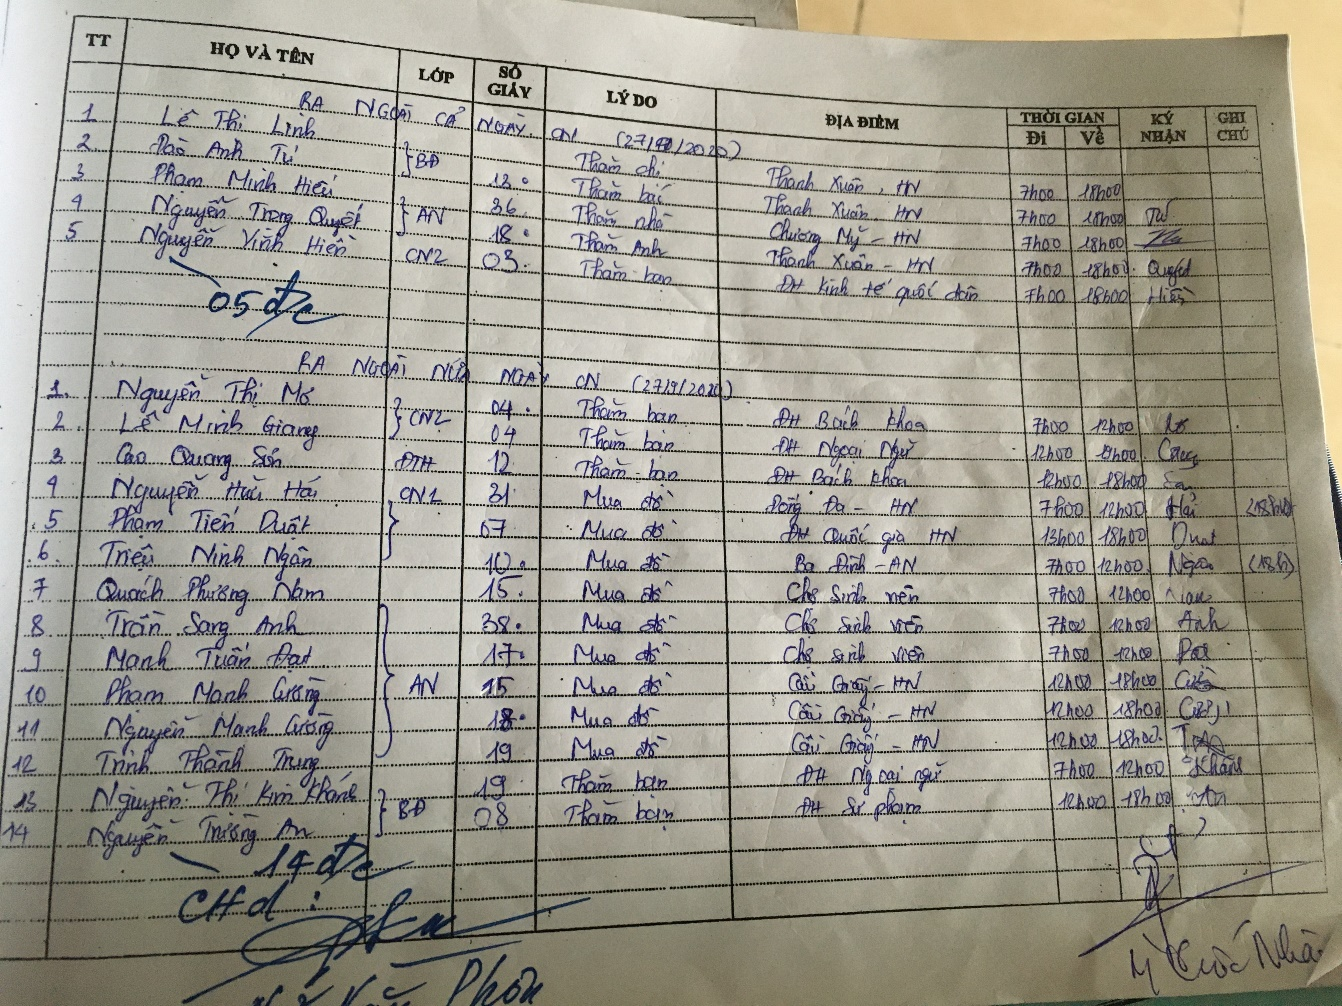 TT HỌ VÀ TÊN LỚP SỐ GIẤY LÝ DO ĐỊA ĐIỂM THỜI GIAN Đi Về KÝ NHẬN GHI CHÚ
RA NGOÀI CẢ NGÀY CN (27/9/2020)
1 Lê Thị Linh BĐ Thăm chị Thanh Xuân, HN 7h00 18h00
2 Đào Anh Tú 13 Thăm bác Thanh Xuân, HN 7h00 18h00 Tú
3 Phạm Minh Hiếu AN 36 Thăm nhà Chương Mỹ - HN 7h00 18h00
4 Nguyễn Trọng Quyết 18 Thăm Anh Thanh Xuân - HN 7h00 18h00 Quyết
5 Nguyễn Vinh Hiển CN2 03 Thăm bạn ĐH Kinh tế quốc dân 7h00 18h00 Hiển
05 đ/c
RA NGOÀI NỬA NGÀY CN (27/9/2020)
1. Nguyễn Thị Mơ CN2 04 Thăm bạn ĐH Bách khoa 7h00 12h00
2. Lê Minh Giang 04 Thăm bạn ĐH Ngoại Ngữ 12h00 18h00
3 Cao Quang Sơn ĐTH 12 Thăm bạn ĐH Bách khoa 12h00 18h00 Sơn
4 Nguyễn Hữu Hải CN1 31 Mua đồ Đống Đa - HN 7h00 12h00 Hải
5 Phạm Tiến Duật 07 Mua đồ ĐH Quốc gia HN 13h00 18h00 Duật
6. Triệu Ninh Ngân 10 Mua đồ Ba Đình - AN 7h00 12h00 Ngân (18h)
7 Quách Phương Nam 15 Mua đồ Chợ Sinh viên 7h00 12h00 Nam
8 Trần Sang Anh AN 38 Mua đồ Chợ Sinh viên 7h00 12h00 Anh
9 Mạnh Tuấn Đạt 17 Mua đồ Chợ sinh viên 7h00 12h00 Đạt
10 Phạm Mạnh Cường 15 Mua đồ Cầu Giấy - HN 12h00 18h00
11 Nguyễn Mạnh Cường 18 Mua đồ Cầu Giấy - HN 12h00 18h00
12 Trịnh Thành Trung 19 Mua đồ Cầu Giấy - HN 12h00 18h00
13 Nguyễn Thị Kim Khánh BĐ 19 Thăm bạn ĐH Ngoại ngữ 7h00 12h00 Khánh
14 Nguyễn Trường An 08 Thăm bạn ĐH Sư phạm 12h00 18h00
14 đ/c
CHd: